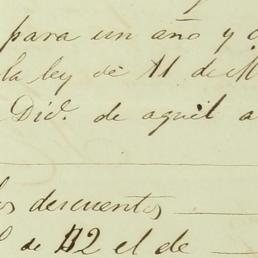 para un año y
la ley de 11 de M
Div.º de aquel a
los descuentos
de 32 el de